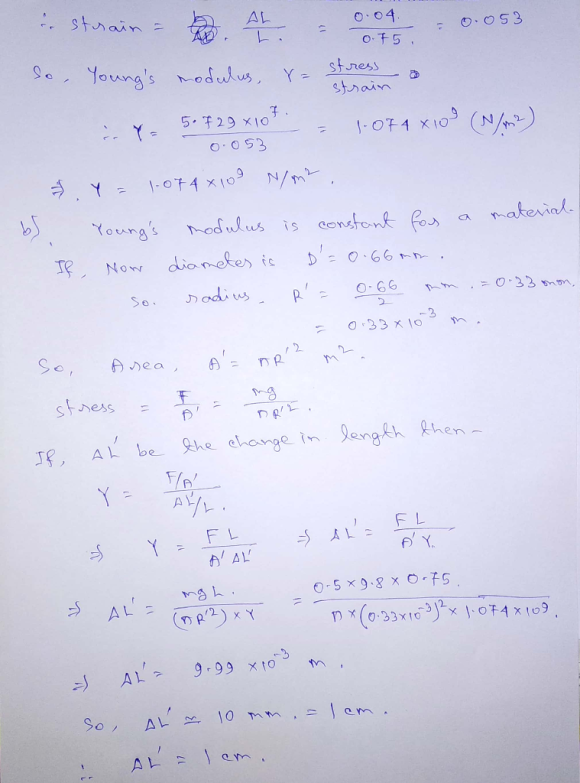 ∴ strain = ΔL/L. = 0.04/0.75. = 0.053
So, Young's modulus, Y = stress/strain
∴ Y = 5.729 × 10⁷/0.053 = 1.074 × 10⁹ (N/m²)
⇒ Y = 1.074 × 10⁹ N/m².
b) Young's modulus is constant for a material.
If, Now diameter is D' = 0.66 mm.
So. radius, R' = 0.66/2 mm. = 0.33 mm.
= 0.33 × 10⁻³ m.
So, Area, A' = πR'² m².
stress = F/A' = mg/πR'².
If, ΔL' be the change in length then –
Y = F/A'/ΔL'/L.
⇒ Y = FL/A'ΔL' ⇒ ΔL' = FL/A'Y.
⇒ ΔL' = mgL./(πR'²) × Y = 0.5 × 9.8 × 0.75./π × (0.33 × 10⁻³)² × 1.074 × 10⁹.
⇒ ΔL' = 9.99 × 10⁻³ m.
So, ΔL' ≃ 10 mm. = 1 cm.
∴ ΔL' = 1 cm.